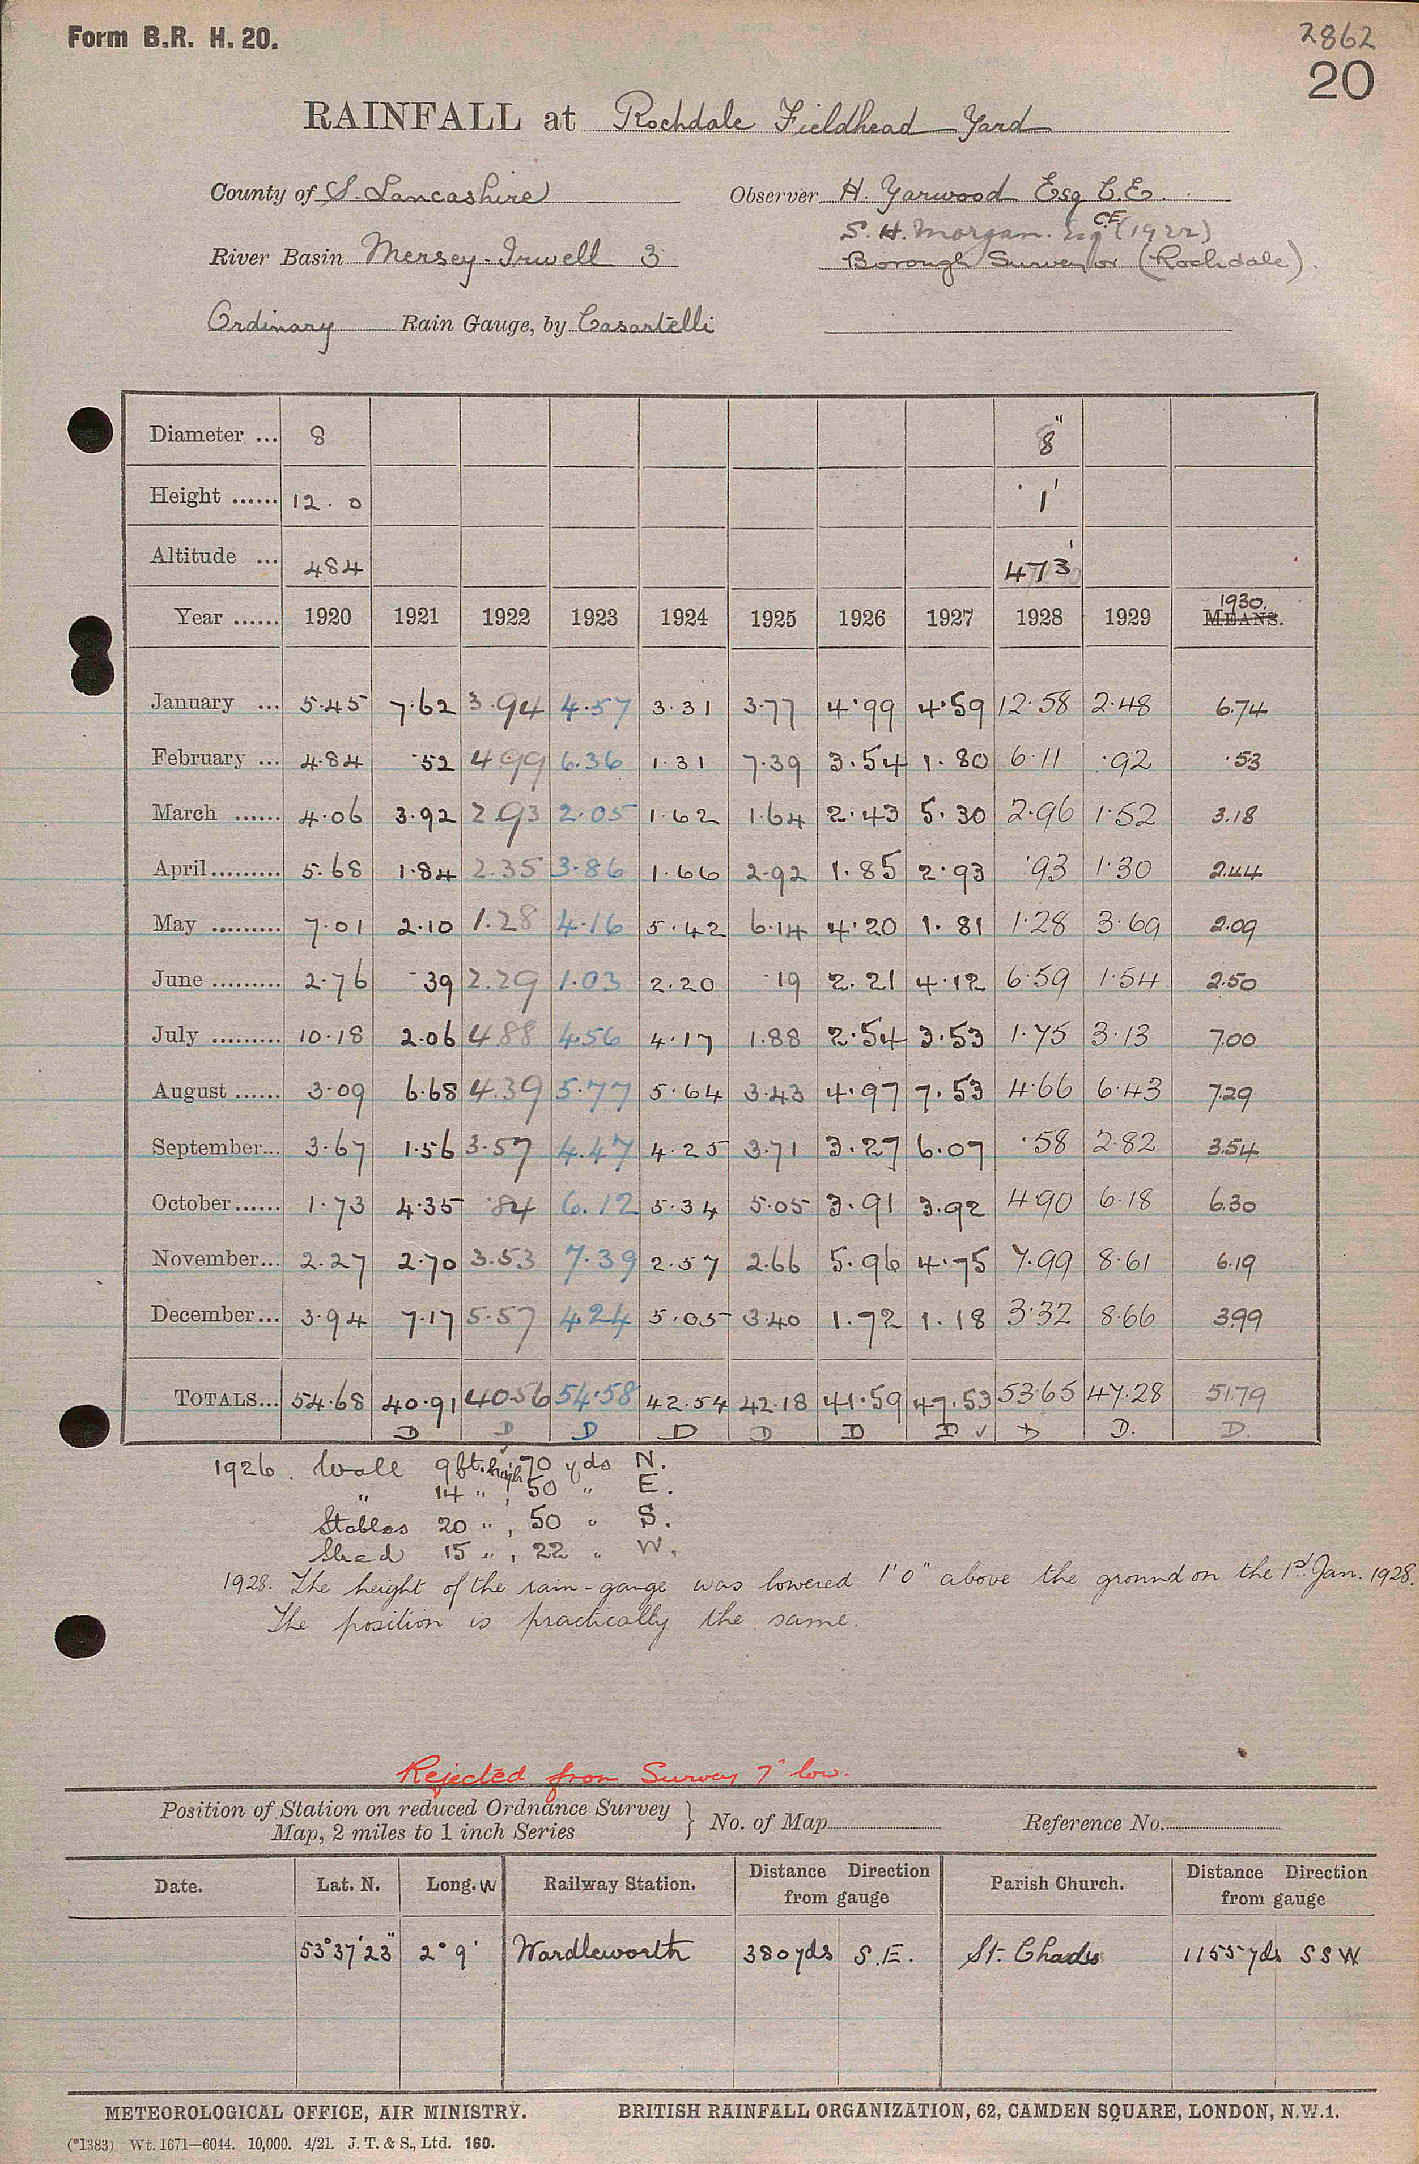 Form B.R. H. 20.
2862
20
RAINFALL at Rochdale Fieldhead Yard
County of S. Lancashire Observer H. Yarwood Esq C.E.
S. H. Morgan. Esq C.E. (1922)
River Basin Mersey-Irwell 3 Borough Surveyor (Rochdale).
Ordinary Rain Gauge, by Casartelli
Diameter ... 8 8"
Height ...... 12. 0 1'
Altitude ... 484 473'
Year ...... 1920 1921 1922 1923 1924 1925 1926 1927 1928 1929 1930. MEANS.
January ... 5.45 7.62 3.94 4.57 3.31 3.77 4.99 4.59 12.58 2.48 6.74
February ... 4.84 .52 4.99 6.36 1.31 7.39 3.54 1.80 6.11 .92 .53
March ...... 4.06 3.92 2.93 2.05 1.62 1.64 2.43 5.30 2.96 1.52 3.18
April......... 5.68 1.84 2.35 3.86 1.66 2.92 1.85 2.93 .93 1.30 2.44
May ......... 7.01 2.10 1.28 4.16 5.42 6.14 4.20 1.81 1.28 3.69 2.09
June ......... 2.76 .39 2.29 1.03 2.20 .19 2.21 4.12 6.59 1.54 2.50
July ......... 10.18 2.06 4.88 4.56 4.17 1.88 2.54 3.53 1.75 3.13 7.00
August ...... 3.09 6.68 4.39 5.77 5.64 3.43 4.97 7.53 4.66 6.43 7.29
September... 3.67 1.56 3.57 4.47 4.25 3.71 3.27 6.07 .58 2.82 3.54
October...... 1.73 4.35 .84 6.12 5.34 5.05 3.91 3.92 4.90 6.18 6.30
November... 2.27 2.70 3.53 7.39 2.57 2.66 5.96 4.75 7.99 8.61 6.19
December... 3.94 7.17 5.57 4.24 5.05 3.40 1.72 1.18 3.32 8.66 3.99
TOTALS... 54.68 40.91 40.56 54.58 42.54 42.18 41.59 47.53 53.65 47.28 51.79
D D D D D D D ✓ D D. D.
1926. Wall 9ft. high, 70 yds N.
" 14 " , 50 " E.
Stables 20 " , 50 " S.
Shed 15 " , 22 " W.
1928. The height of the rain-gauge was lowered 1' 0" above the ground on the 1st Jan. 1928.
The position is practically the same.
Rejected from Survey 7" low.
Position of Station on reduced Ordnance Survey
Map, 2 miles to 1 inch Series } No. of Map Reference No.
Date. Lat. N. Long. W Railway Station. Distance Direction from gauge Parish Church. Distance Direction from gauge
53°37'23" 2° 9' Wardleworth 380 yds S.E. St. Chads 1155 yds S S W
METEOROLOGICAL OFFICE, AIR MINISTRY. BRITISH RAINFALL ORGANIZATION, 62, CAMDEN SQUARE, LONDON, N.W.1.
(*1383) Wt. 1671—6044. 10,000. 4/21. J. T. & S., Ltd. 160.